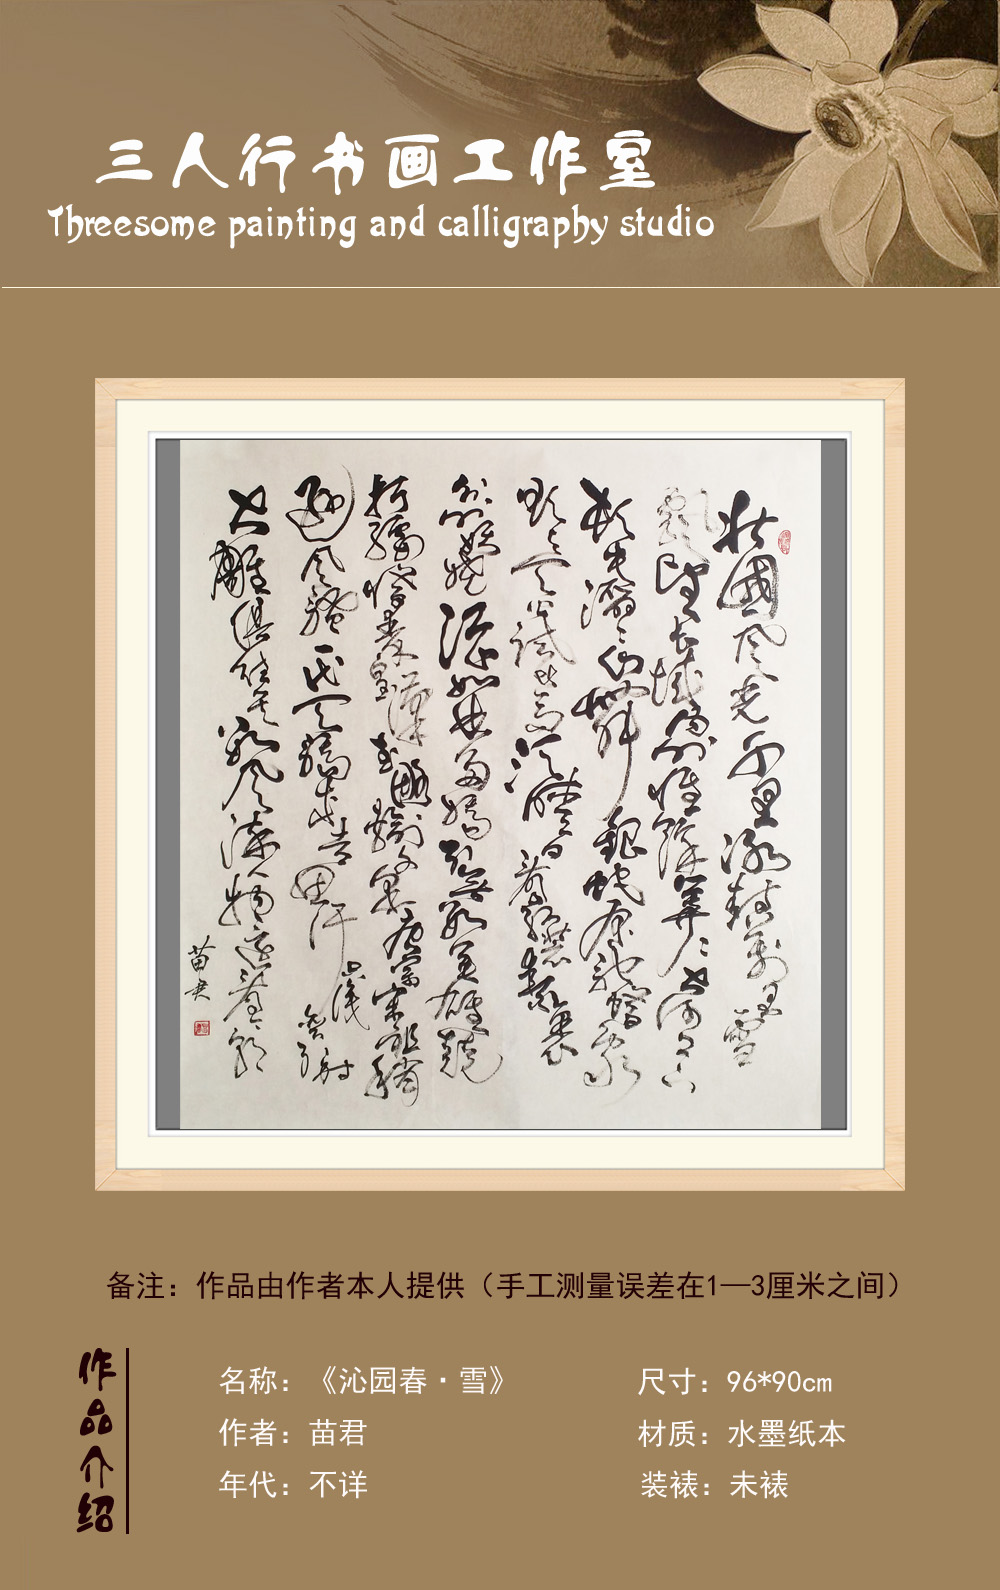 三人行书画工作室
Threesome painting and calligraphy studio
北國風光千里冰封萬里雪
飄望長城內外惟餘莽々大河上下
頓失滔々山舞銀蛇原馳蠟象
欲與天公試比高須晴日看紅裝素裹
分外妖嬈江山如此多嬌引無數英雄競
折腰惜秦皇漢武略輸文采唐宗宋祖稍
遜風騷一代天驕成吉思汗只識彎弓射
大雕俱往矣數風流人物還看今朝
苗君
备注：作品由作者本人提供（手工测量误差在1—3厘米之间）
作品介绍
名称：《沁园春·雪》 尺寸：96*90cm
作者：苗君 材质：水墨纸本
年代：不详 装裱：未裱